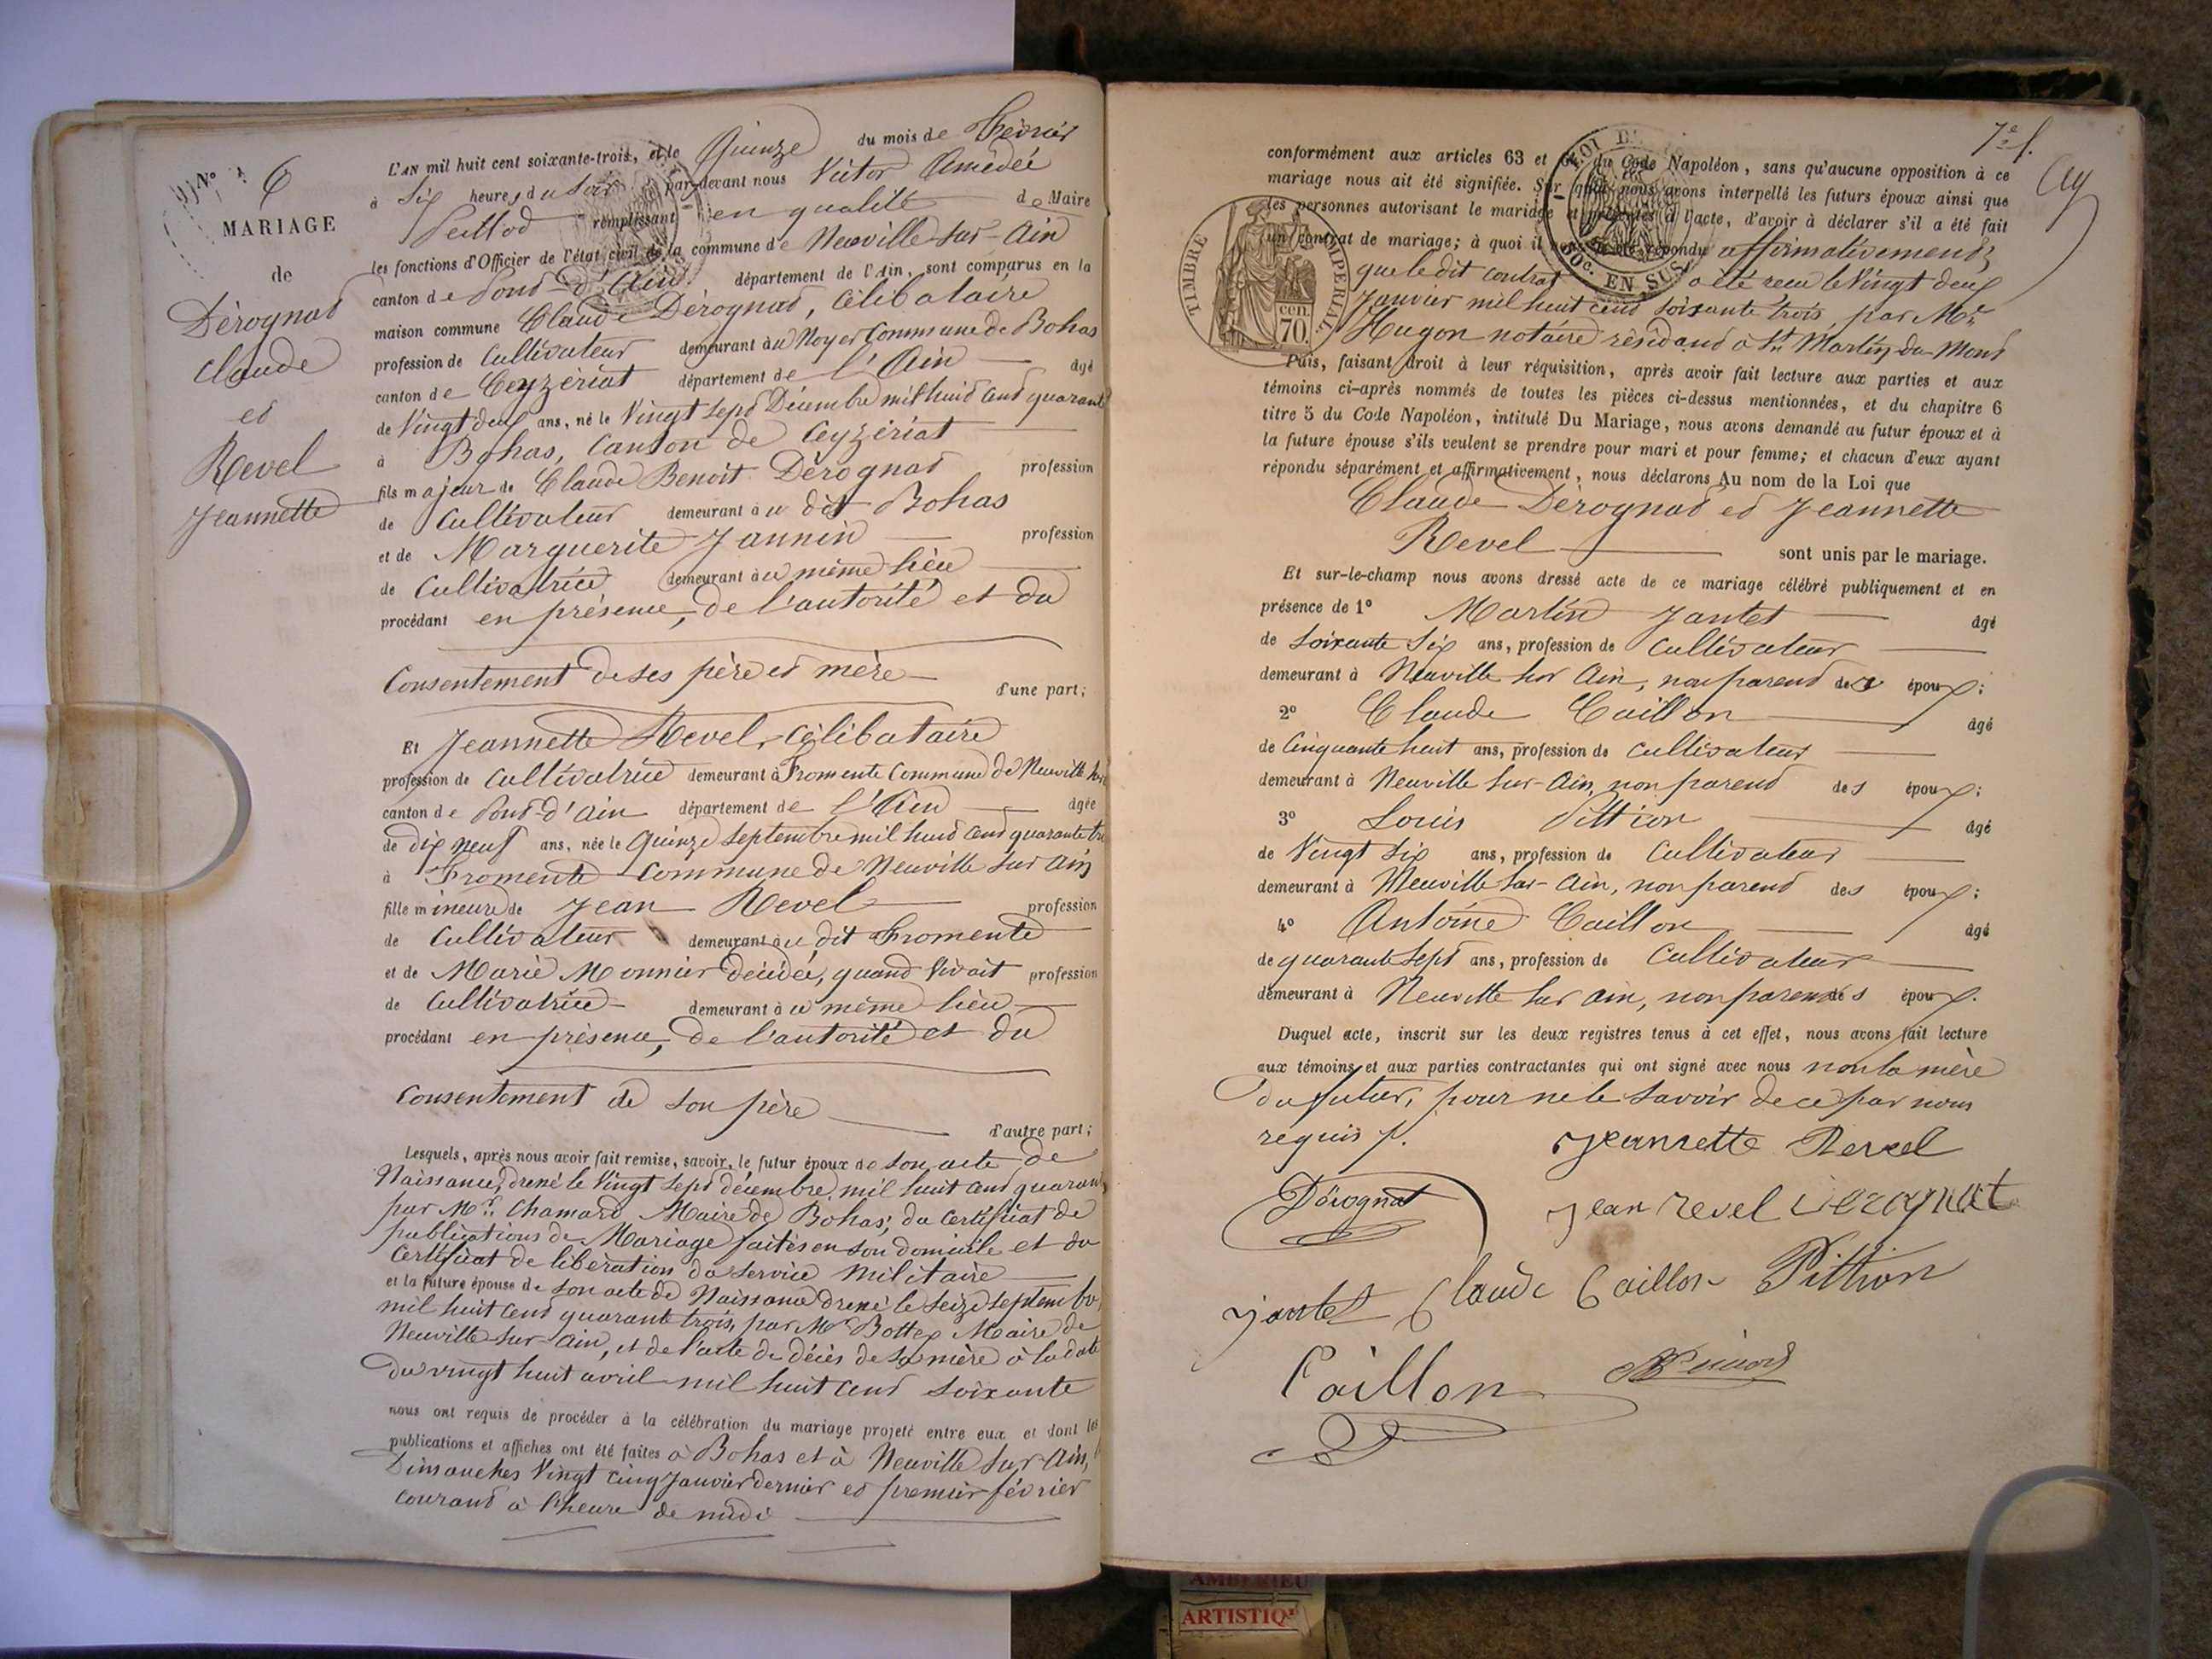 N° 6
MARIAGE
de
Dérognat
Claude
et
Revel
Jeannette
L'AN mil huit cent soixante-trois, et le Quinze du mois de Février
à Six heures du Soir par-devant nous Victor Amédée
remplissant en qualité de Maire
les fonctions d'Officier de l'état civil de la commune de Neuville-sur-Ain
canton de Pont-d'Ain département de l'Ain, sont comparus en la
maison commune Claude Dérognat, Célibataire
profession de Cultivateur demeurant au Noyer Commune de Bohas
canton de Ceyzériat département de l'Ain âgé
de Vingt deux ans, né le Vingt sept Décembre mil huit cent quarante
à Bohas, Canton de Ceyzériat
fils majeur de Claude Benoit Dérognat profession
de Cultivateur demeurant au dit Bohas
et de Marguerite Jannin profession
de Cultivatrice demeurant au même lieu
procédant en présence, de l'autorité et du
Consentement de ses père et mère d'une part;
Et Jeannette Revel, Célibataire
profession de Cultivatrice demeurant à Fromente Commune de Neuville sur
canton de Pont-d'Ain département de l'Ain âgée
de dix neuf ans, née le Quinze Septembre mil huit cent quarante tro
à Fromente Commune de Neuville sur Ain
fille mineure de Jean Revel profession
de Cultivateur demeurant au dit Fromente
et de Marie Monnier décédée, quand vivait profession
de Cultivatrice demeurant au même lieu
procédant en présence, de l'autorité et du
Consentement de son père d'autre part;
Lesquels, après nous avoir fait remise, savoir, le futur époux de son acte de
Naissance, dressé le Vingt sept décembre mil huit cent quarante,
par Mr. Chamard Maire de Bohas; du Certificat de
publications de Mariage faites en son domicile et du
Certificat de libération du service militaire
et la future épouse de son acte de Naissance dressé le Seize Septembre
mil huit cent quarante trois, par Mr Bottex Maire de
Neuville-sur-Ain, et de l'acte de décès de sa mère à la date
du vingt huit avril mil huit cent soixante
nous ont requis de procéder à la célébration du mariage projeté entre eux et dont les
publications et affiches ont été faites à Bohas et à Neuville sur Ain,
Dimanches Vingt cinq Janvier dernier et premier février
courant à l'heure de midi
7e f.
conformément aux articles 63 et du Code Napoléon, sans qu'aucune opposition à ce
mariage nous ait été signifiée. Sur quoi nous avons interpellé les futurs époux ainsi que
les personnes autorisant le mariage et présentes à l'acte, d'avoir à déclarer s'il a été fait
un contrat de mariage; à quoi il nous a été répondu affirmativement,
que le dit contrat a été reçu le Vingt deux
Janvier mil huit cent soixante trois par Me
Hugon notaire résidant à St. Martin du Mont
TIMBRE IMPERIAL
70. cen.
EN SUS
Puis, faisant droit à leur réquisition, après avoir fait lecture aux parties et aux
témoins ci-après nommés de toutes les pièces ci-dessus mentionnées, et du chapitre 6
titre 5 du Code Napoléon, intitulé Du Mariage, nous avons demandé au futur époux et à
la future épouse s'ils veulent se prendre pour mari et pour femme; et chacun d'eux ayant
répondu séparément et affirmativement, nous déclarons Au nom de la Loi que
Claude Dérognat et Jeannette
Revel sont unis par le mariage.
Et sur-le-champ nous avons dressé acte de ce mariage célébré publiquement et en
présence de 1° Martin Jantet âgé
de soixante Six ans, profession de Cultivateur
demeurant à Neuville sur Ain, non parent des époux;
2° Claude Caillon âgé
de Cinquante huit ans, profession de cultivateur
demeurant à Neuville sur-Ain, non parent des époux;
3° Louis Pittion âgé
de Vingt Six ans, profession de Cultivateur
demeurant à Neuville sur-Ain, non parent des époux;
4° Antoine Caillon âgé
de quarante Sept ans, profession de Cultivateur
demeurant à Neuville sur ain, non parent des époux.
Duquel acte, inscrit sur les deux registres tenus à cet effet, nous avons fait lecture
aux témoins et aux parties contractantes qui ont signé avec nous non la mère
du futur, pour ne le savoir de ce par nous
requis f.
Jeannette Revel
Dérognat
Jean revel Derognat
jantet Claude Caillon Pittion
Caillon
AMBERIEU
ARTISTIQ